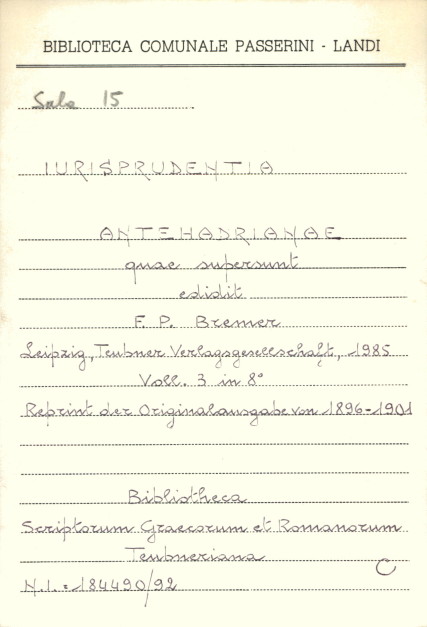 BIBLIOTECA COMUNALE PASSERINI - LANDI
Sala 15
IURISPRUDENTIA
ANTEHADRIANAE
quae supersunt
edidit
F. P. Bremer
Leipzig, Teubner Verlagsgesellschaft, 1985
Voll. 3 in 8°
Reprint der Originalausgabe von 1896-1901
Bibliotheca
Scriptorum Graecorum et Romanorum
Teubneriana
C
N.I. = 184490/92